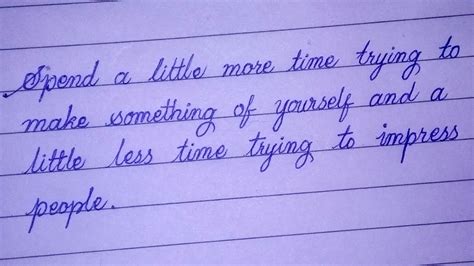 Spend a little more time trying to
make something of yourself and a
little less time trying to impress
people.